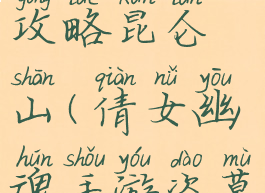 gōng lüè kūn lún
攻略昆仑
shān qiàn nǚ yōu
山(倩女幽
hún shǒu yóu dào mù
魂手游盗墓